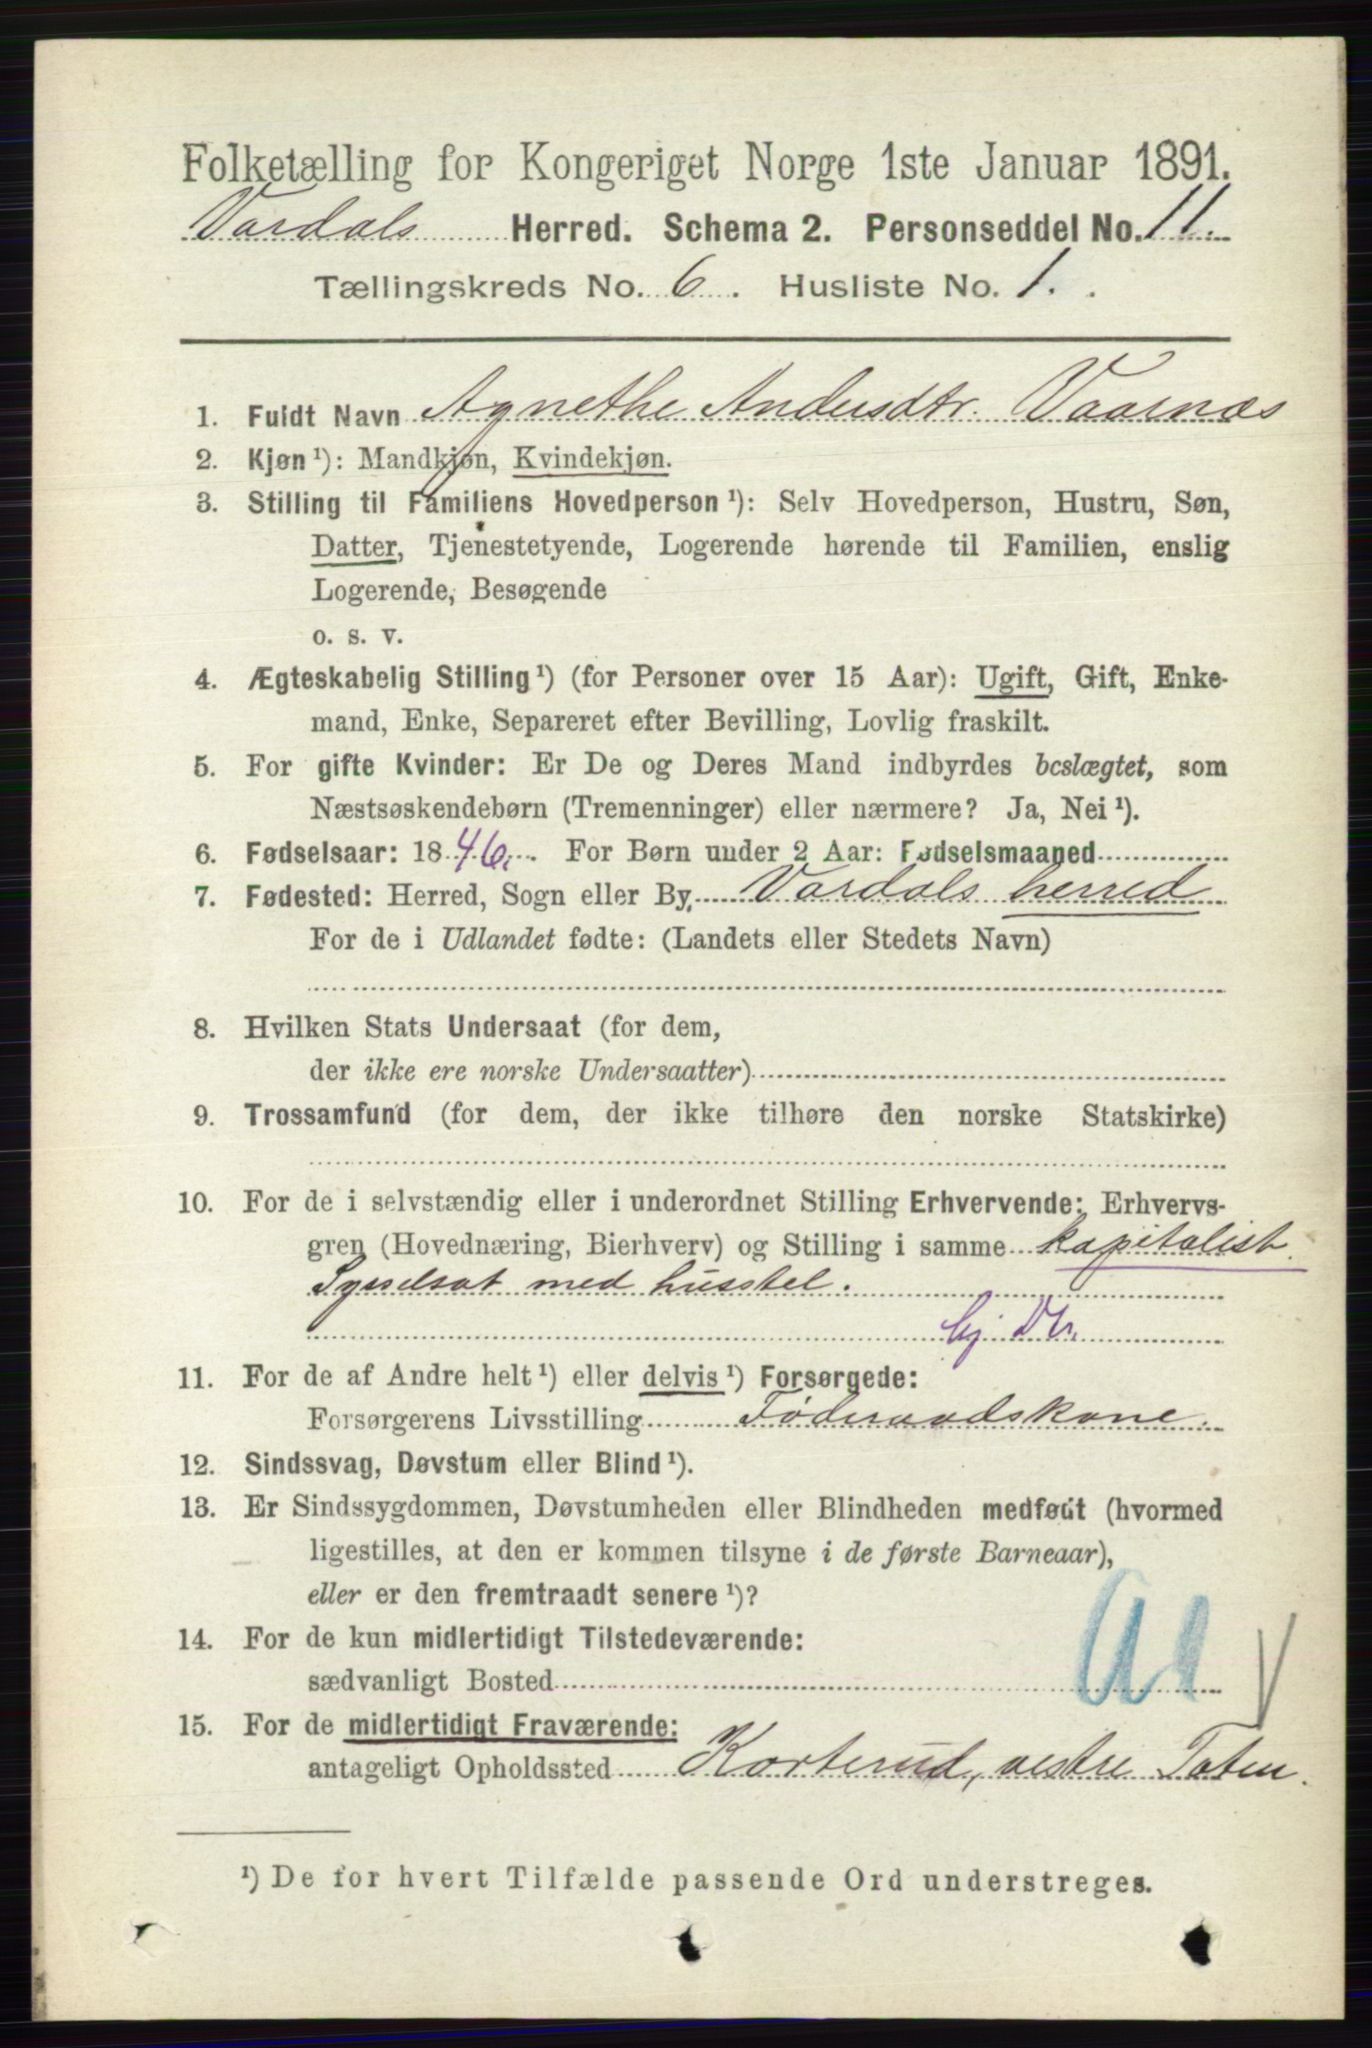 Folketælling for Kongeriget Norge 1ste Januar 1891.
Vardals Herred. Schema 2. Personseddel No. 11.
Tællingskreds No. 6. Husliste No. 1.
1. Fuldt Navn Agnethe Andersdtr. Vaarnæs
2. Kjøn¹): Mandkjøn, Kvindekjøn.
3. Stilling til Familiens Hovedperson¹): Selv Hovedperson, Hustru, Søn,
Datter, Tjenestetyende, Logerende hørende til Familien, enslig
Logerende, Besøgende
o. s. v.
4. Ægteskabelig Stilling¹) (for Personer over 15 Aar): Ugift, Gift, Enke-
mand, Enke, Separeret efter Bevilling, Lovlig fraskilt.
5. For gifte Kvinder: Er De og Deres Mand indbyrdes beslægtet, som
Næstsøskendebørn (Tremenninger) eller nærmere? Ja, Nei¹).
6. Fødselsaar: 1846. For Børn under 2 Aar: Fødselsmaaned
7. Fødested: Herred, Sogn eller By Vardals herred
For de i Udlandet fødte: (Landets eller Stedets Navn)
8. Hvilken Stats Undersaat (for dem,
der ikke ere norske Undersaatter)
9. Trossamfund (for dem, der ikke tilhøre den norske Statskirke)
10. For de i selvstændig eller i underordnet Stilling Erhvervende: Erhvervs-
gren (Hovednæring, Bierhverv) og Stilling i samme kapitalist.
Sysselsat med husstel.
11. For de af Andre helt¹) eller delvis¹) Forsørgede:
Forsørgerens Livsstilling Føderaadskone.
12. Sindssvag, Døvstum eller Blind¹).
13. Er Sindssygdommen, Døvstumheden eller Blindheden medfødt (hvormed
ligestilles, at den er kommen tilsyne i de første Barneaar),
eller er den fremtraadt senere¹)?
14. For de kun midlertidigt Tilstedeværende:
sædvanligt Bosted
15. For de midlertidigt Fraværende:
antageligt Opholdssted Korterud, vestre Toten.
¹) De for hvert Tilfælde passende Ord understreges.